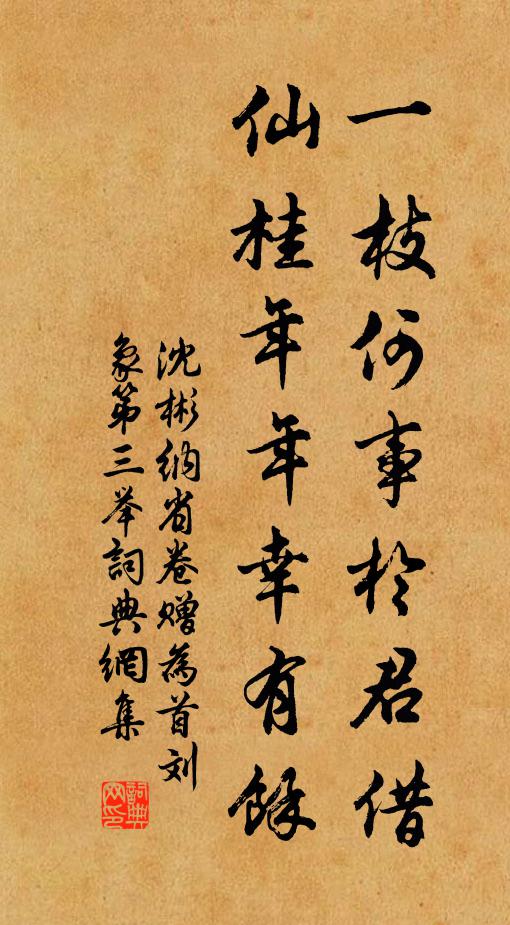 一枝何事於君借
仙桂年年幸有餘
沈彬納省卷贈為首刘
象第三举詞典網集
詞典网印